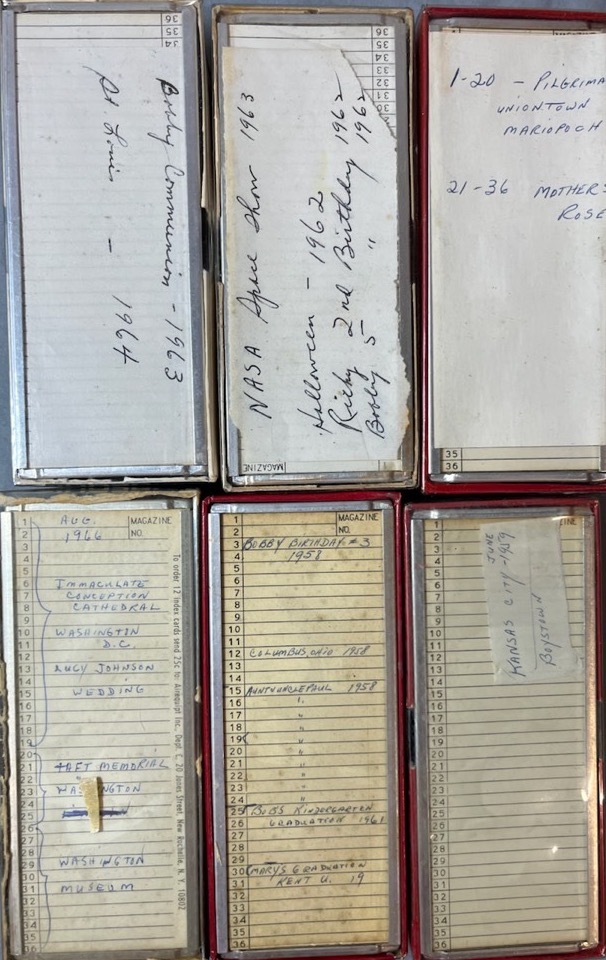 36
35
34
Bobby Communion - 1963
St. Louis - 1964
36
35
34
33
32
31
30
NASA Space Show 1963
Halloween - 1962
Ricky 2nd Birthday 1962
Bobby 5 " 1962
MAGAZINE
1-20 - PILGRIMA
UNIONTOWN
MARIOPOCH
21-36 MOTHERS
ROSE
35
36
1 AUG.
2 1966
MAGAZINE
NO.
3
4
5
6 IMMACULATE
7 CONCEPTION
8 CATHEDRAL
9
10 WASHINGTON
11 D.C.
12
13 LUCY JOHNSON
14
15 WEDDING
16
17
18
19
20
21 TAFT MEMORIAL
22 "
23 WASHINGTON
24
25
26
27
28
29 WASHINGTON
30
31 MUSEUM
32
33
34
35
36
To order 12 index cards send 25c to: Airequipt Inc. Dept. C, 20 Jones Street, New Rochelle, N. Y. 10802
1
MAGAZINE
2
NO.
3 BOBBY BIRTHDAY #3
4 1958
5
6
7
8
9
10
11
12 COLUMBUS, OHIO 1958
13
14
15 AUNT & UNCLE PAUL 1958
16 "
17 "
18 "
19 "
20 "
21 "
22 "
23 "
24 "
25 BOBS KINDERGARTEN
26 GRADUATION 1961
27
28
29
30 MARYS GRADUATION
31 KENT U. 19
32
33
34
35
36
1
2
3
4
5
6
7
8
9
10
11
12
13
14
15
16
17
18
19
20
21
22
23
24
25
26
27
28
29
30
31
32
33
34
35
36
JUNE
KANSAS CITY - 1959
BOYSTOWN